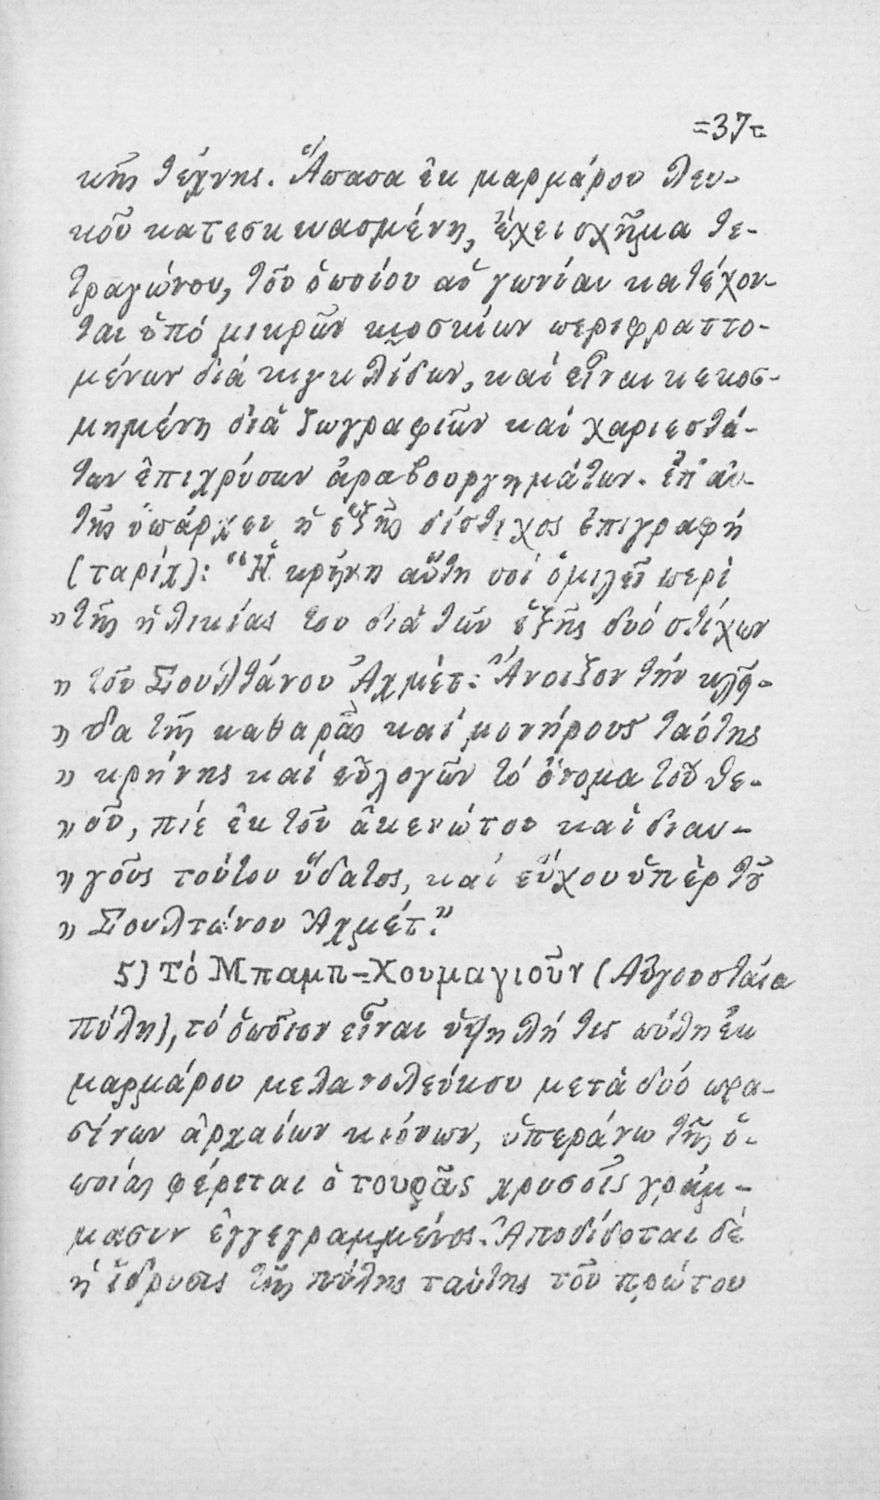 =37=
κῆς τέχνης. Ἅπασα ἐκ μαρμάρου λευ-
κοῦ κατεσκευασμένη, ἔχει σχῆμα τε-
τραγώνου, τοῦ ὁποίου αἱ γωνίαι κατέχον-
ται ὑπό μικρῶν κιοσκίων περιφραττο-
μένων διά κιγκλίδων, καί εἶναι κεκοσ-
μημένη διά ζωγραφιῶν καί χαριεστά-
των ἐπιχρύσων ἀραβουργημάτων. Ἐπ' αὐ-
τῆς ὑπάρχει ἡ ἑξῆς δίστιχος ἐπιγραφή
(ταρίχ): "Ἡ κρήνη αὕτη σοί ὁμιλεῖ περί
" τῆς ἡλικίας του διά τῶν ἑξῆς δυό στίχων
" τοῦ Σουλτάνου Ἀχμέτ: Ἄνοιξον τήν κλῇ-
" δα τῆς καθαρᾶς καί μονήρους ταύτης
" κρήνης καί εὐλογῶν τό ὄνομα τοῦ Θε-
" οῦ, πιέ ἐκ τοῦ ἀκενώτου καί διαυ-
" γοῦς τούτου ὕδατος, καί εὔχου ὑπέρ τοῦ
" Σουλτάνου Ἀχμέτ."
5) Τό Μπαμπ-Χουμαγιοῦν (Αὐγουσταία
πύλη), τό ὁποῖον εἶναι ὑψηλή τις πύλη ἐκ
μαρμάρου μελανολεύκου μετά δυό πρα-
σίνων ἀρχαίων κιόνων, ὑπεράνω τῆς ὁ-
ποίας φέρεται ὁ τουρᾶς χρυσοῖς γράμ-
μασιν ἐγγεγραμμένος. Ἀποδίδοται δέ
ἡ ἵδρυσις τῆς πύλης ταύτης τοῦ πρώτου